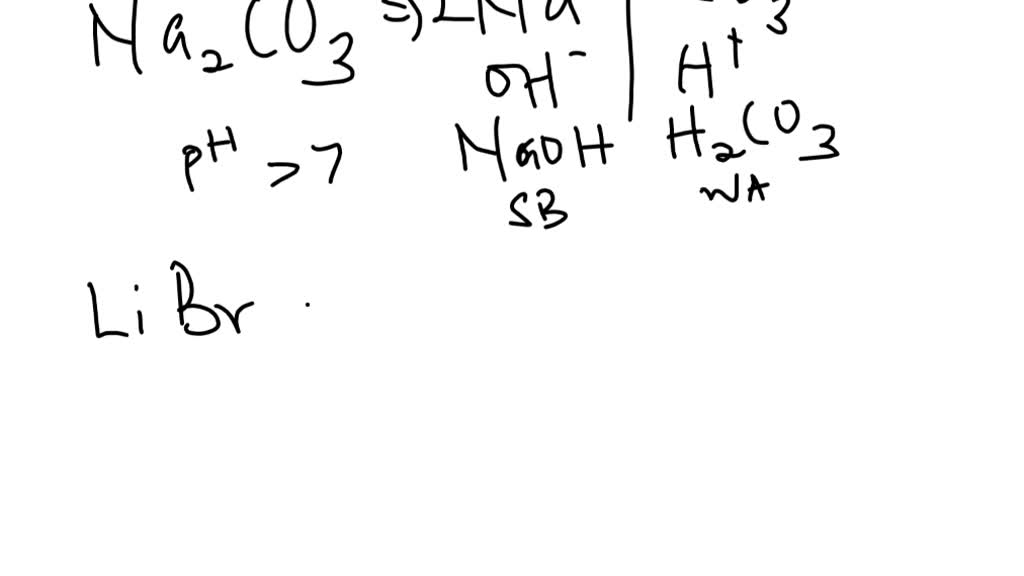 Na₂CO₃ ⇒ 2Na | O₃
OH⁻ H⁺
pH > 7 NaOH H₂CO₃
SB WA
LiBr